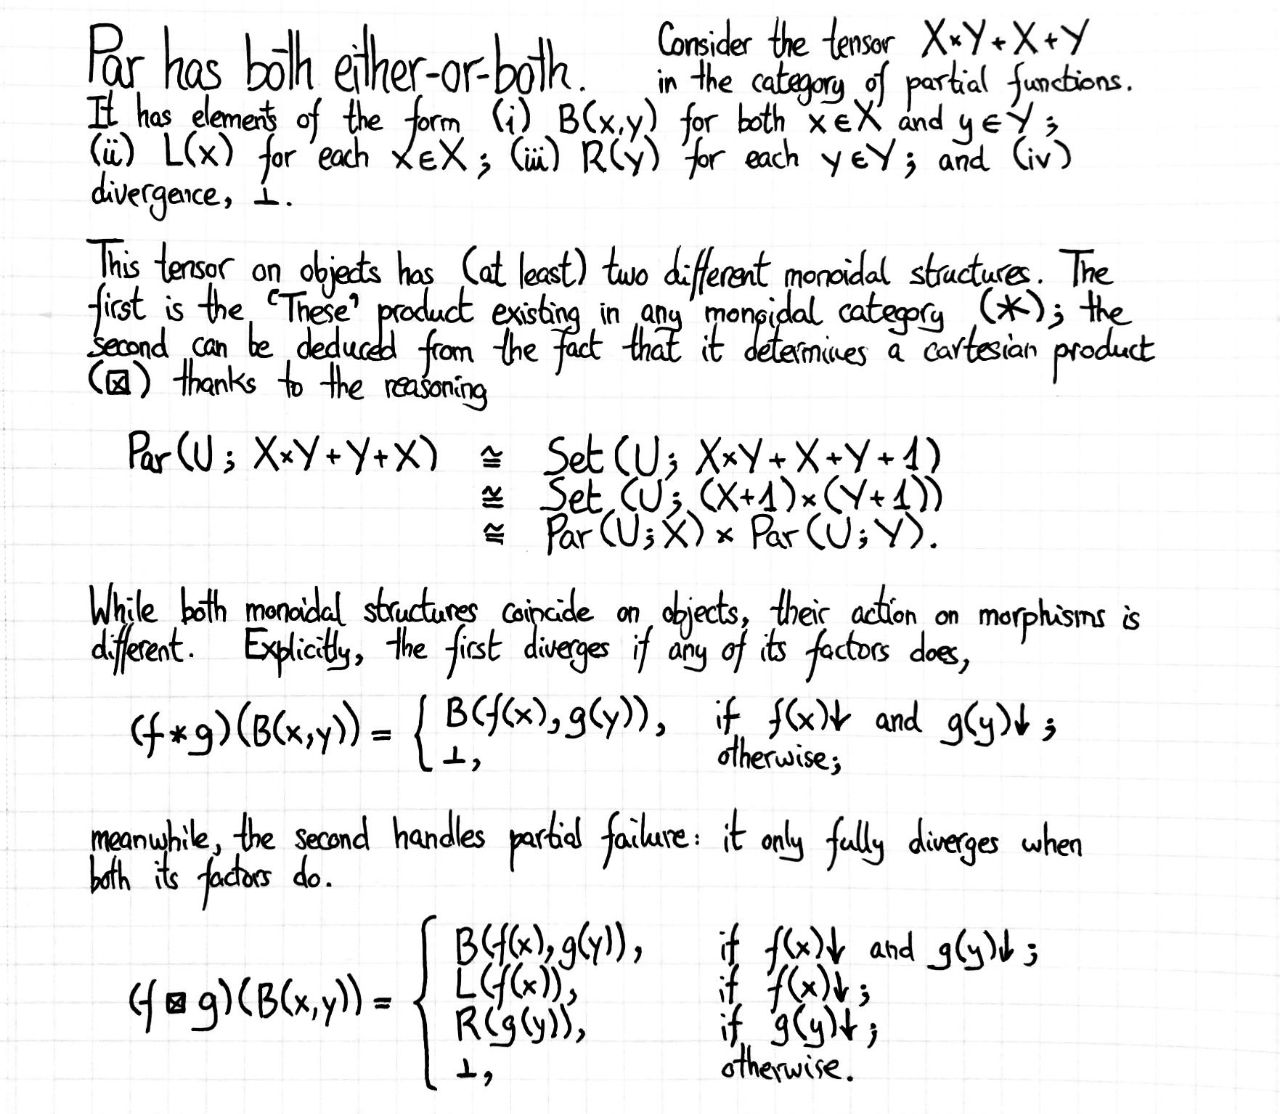 Par has both either-or-both. Consider the tensor X×Y+X+Y
in the category of partial functions.
It has elements of the form (i) B(x,y) for both x∈X and y∈Y;
(ii) L(x) for each x∈X; (iii) R(y) for each y∈Y; and (iv)
divergence, ⊥.
This tensor on objects has (at least) two different monoidal structures. The
first is the 'These' product existing in any monoidal category (*); the
second can be deduced from the fact that it determines a cartesian product
(⊠) thanks to the reasoning
Par(U; X×Y+Y+X) ≅ Set(U; X×Y+X+Y+1)
≅ Set(U; (X+1)×(Y+1))
≅ Par(U;X) × Par(U;Y).
While both monoidal structures coincide on objects, their action on morphisms is
different. Explicitly, the first diverges if any of its factors does,
(f*g)(B(x,y)) = { B(f(x),g(y)), if f(x)↓ and g(y)↓;
⊥, otherwise;
meanwhile, the second handles partial failure: it only fully diverges when
both its factors do.
(f⊠g)(B(x,y)) = { B(f(x),g(y)), if f(x)↓ and g(y)↓;
L(f(x)), if f(x)↓;
R(g(y)), if g(y)↓;
⊥, otherwise.